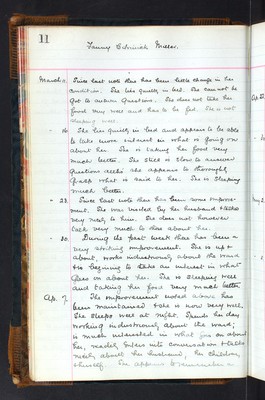 11
Fanny
March 9. Since last note there has been little change in her
condition. She lies quietly in bed. She can not be
got to answer questions. She does not take her
food very well and has to be fed. She is not
sleeping well.
" 16. She lies quietly in bed and appears to be able
to take more interest in what is going on
about her. She is taking her food very
much better. She still is slow to answer
questions altho' she appears to thoroughly
grasp what is said to her. She is sleeping
much better.
" 23. Since last note there has been some improve-
ment. She was visited by her husband & talks
very nicely to him. She does not however
talk very much to those about her.
" 30. During the past week there has been a
very striking improvement. She is up &
about, works industriously about the ward
& is beginning to take an interest in what
goes on about her. She is sleeping well
and taking her food very much better.
Ap. 7. The improvement noted above has
been maintained & she is now very well.
She sleeps well at night. Spends her day
working industriously about the ward,
is much interested in what goes on about
her, readily enters into conversation & talks
nicely about her husband, her children,
& herself. She appears to remember a